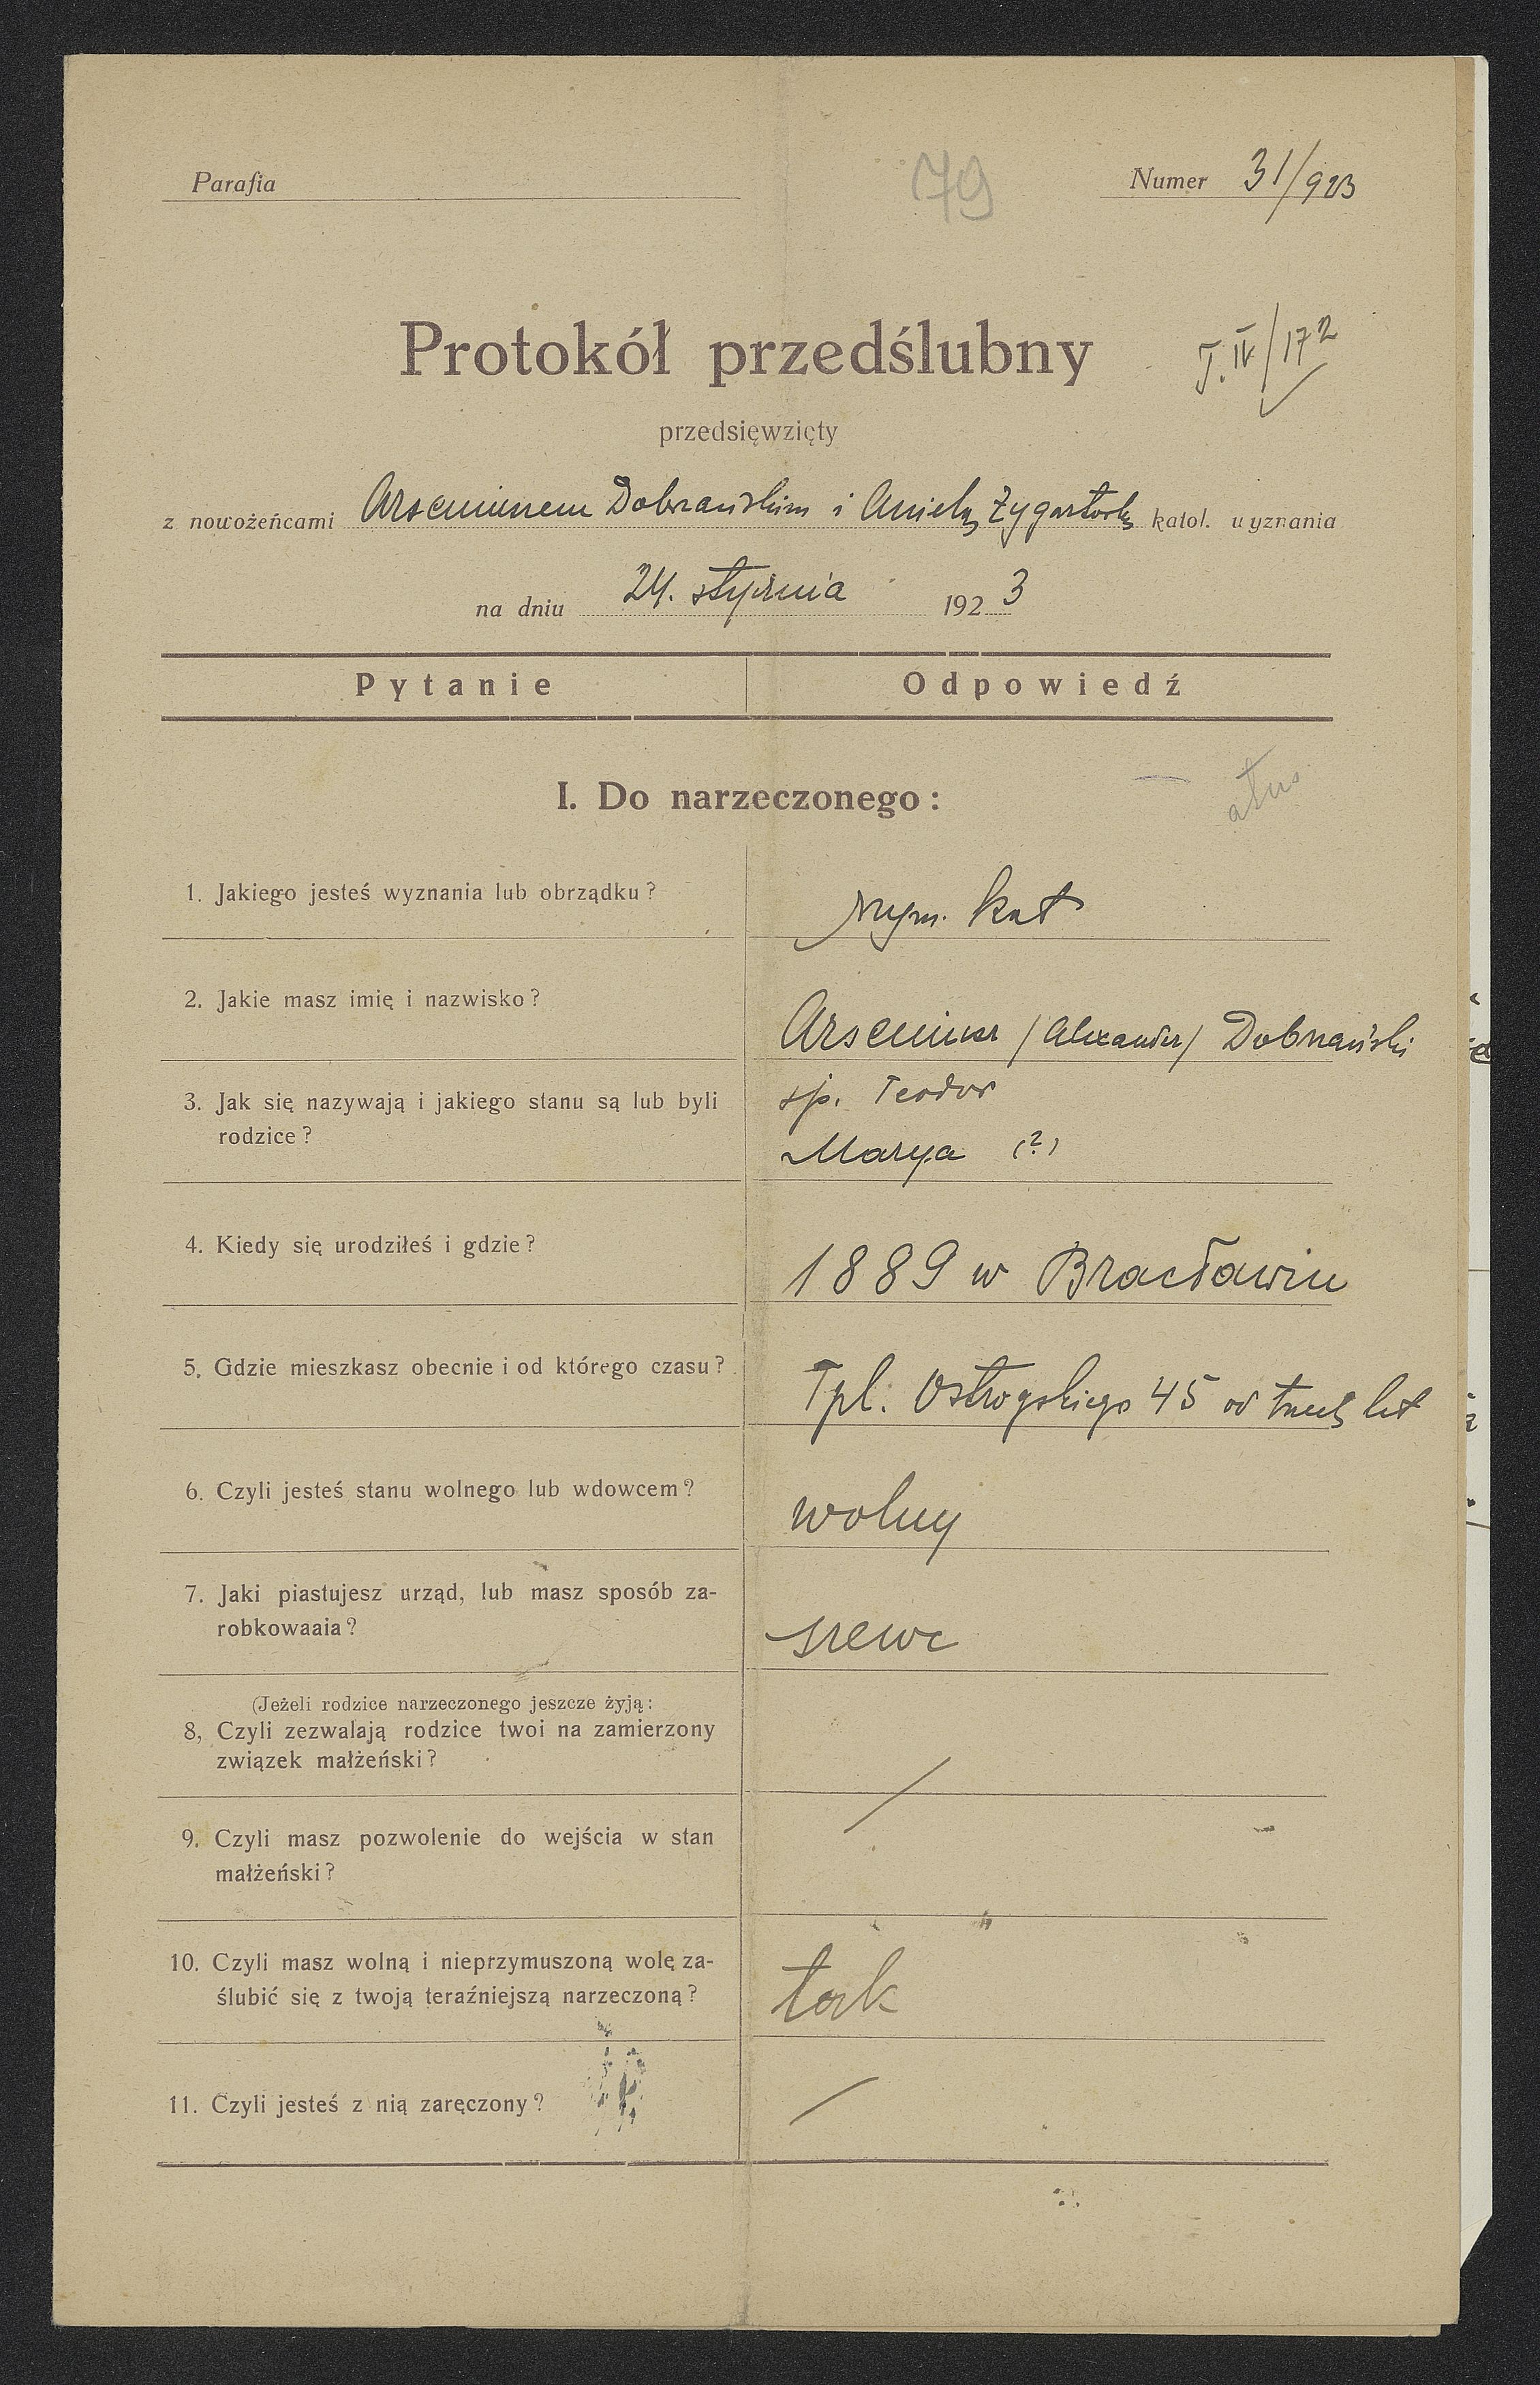 Parafia
79
Numer 31/923
Protokół przedślubny
T. IV/172
przedsięwzięty
z nowożeńcami Arseniuszem Dobrzańskim i Anielą katol. wyznania
na dniu 24. stycznia 1923
Pytanie Odpowiedź
I. Do narzeczonego:
1. Jakiego jesteś wyznania lub obrządku? rzym. kat
2. Jakie masz imię i nazwisko? Arseniusz /Alexander/ Dobrzański
3. Jak się nazywają i jakiego stanu są lub byli śp. Teodor
rodzice? Marya (?)
4. Kiedy się urodziłeś i gdzie? 1889 w Bracławiu
5. Gdzie mieszkasz obecnie i od którego czasu? Tpl. Ostrogskiego 45 od trzech lat
6. Czyli jesteś stanu wolnego lub wdowcem? wolny
7. Jaki piastujesz urząd, lub masz sposób za-
robkowaaia? szewc
(Jeżeli rodzice narzeczonego jeszcze żyją:
8, Czyli zezwalają rodzice twoi na zamierzony
związek małżeński?
9. Czyli masz pozwolenie do wejścia w stan
małżeński?
10. Czyli masz wolną i nieprzymuszoną wolę za-
ślubić się z twoją teraźniejszą narzeczoną? tak
11. Czyli jesteś z nią zaręczony?